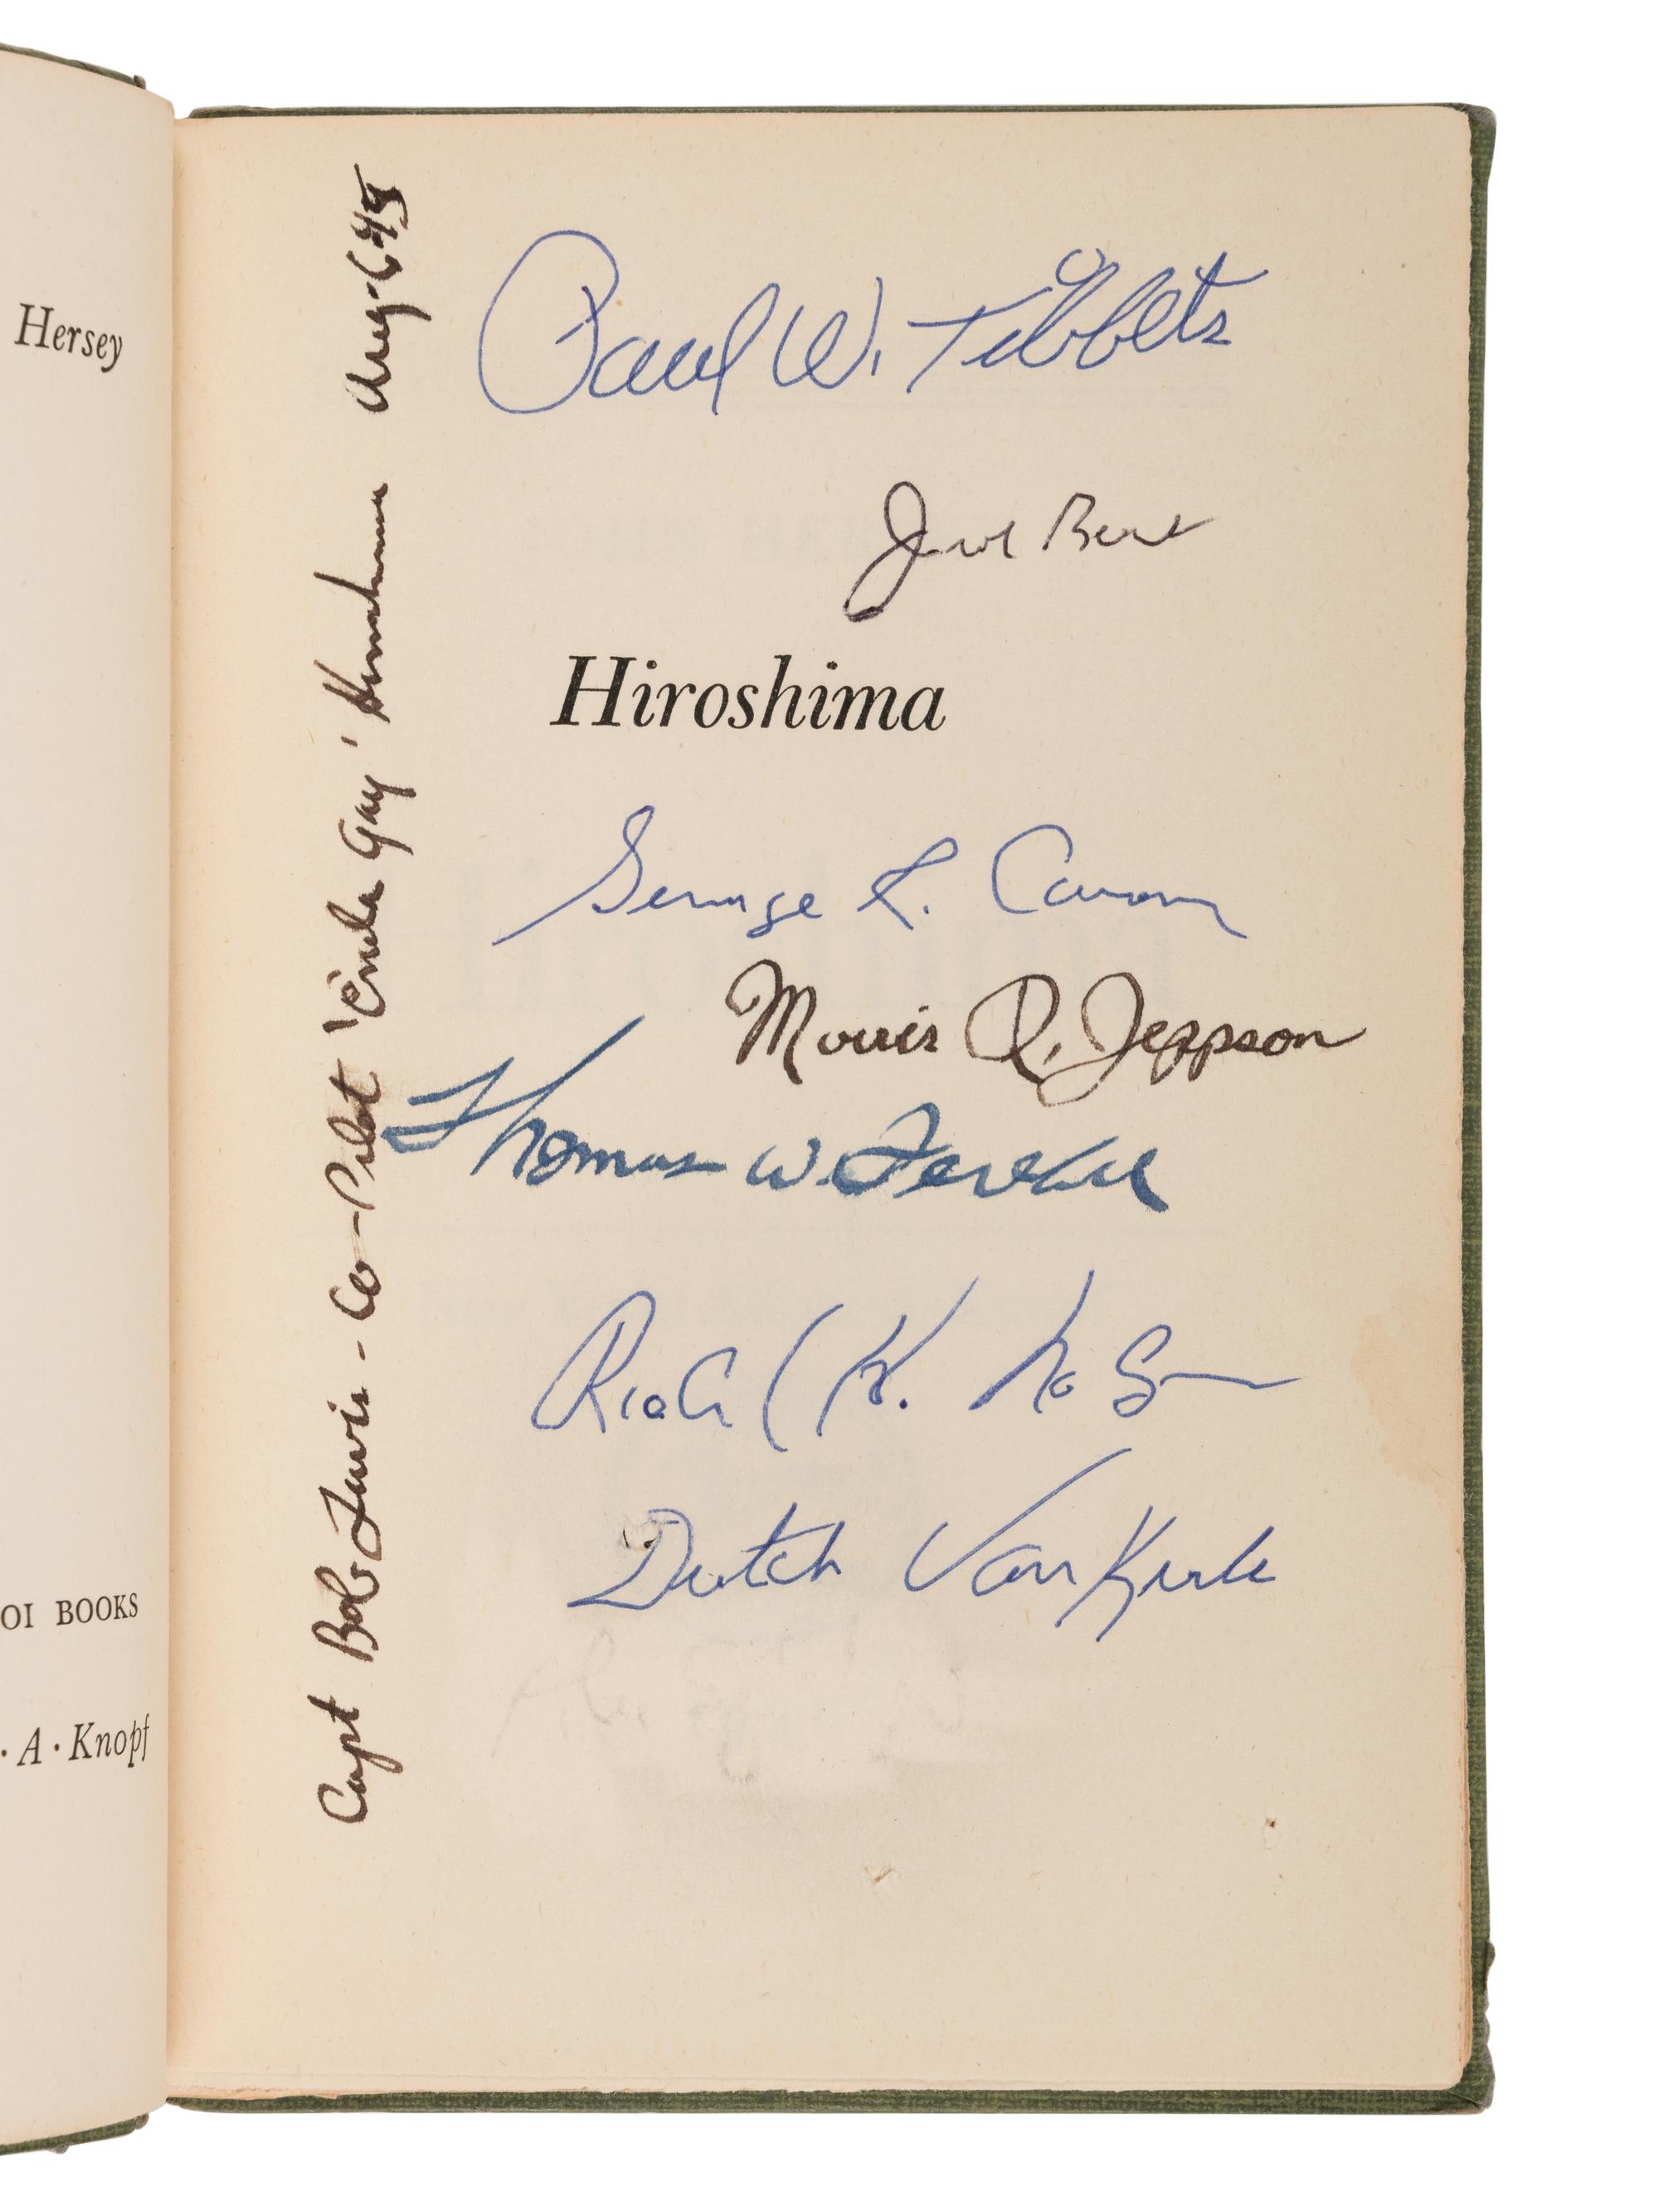 Hersey
OI BOOKS
· A · Knopf
Capt Bob Lewis - Co-Pilot 'Enola Gay' Hiroshima Aug 6 45
Paul W. Tibbets
Hiroshima
George R. Caron
Morris R. Jeppson
Thomas W. Ferebee
Richard K. Nelson
Dutch Van Kirk